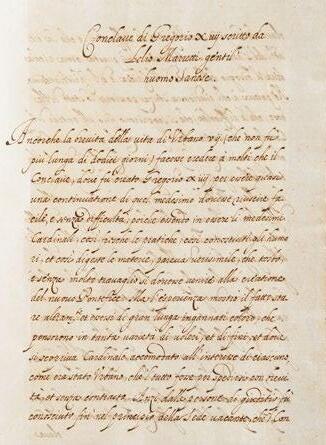 Conclave di Gregorio xiiij scritto da
Lelio Maretti gentil
huomo Sanese.
Ancorche la brevità della vita di Urbano vij. (che non fù
più lunga di dodici giorni) facesse credere à molti che il
Conclave, dove fù creato Gregorio xiiij per essere quasi
una continuatione di quel medesimo dovesse riuscire fa
cile, e senza difficultà, poiche essendo in essere li medesimi
Cardinali, così fresche le pratiche, così conosciuti gli humo
ri, et così digeste le materie, pareva verisimile che tosto,
e senza molto travaglio si dovesse venire alla
del nuovo Pontefice. Ma l'esperienza mostrò il fatto sta
re altramente et essersi di gran lunga ingannati coloro, che
pensavano in tanta varietà di voleri, et di fini, et dove
Cardinale accomodato all'interesse di ciascuno,
come era stato Urbano, che'l tutto fosse per spedirsi con breui
tà, et senza contrasto. Anzi dalle persone
conosciuto fin nel principio della Sede vacante, che'l Con